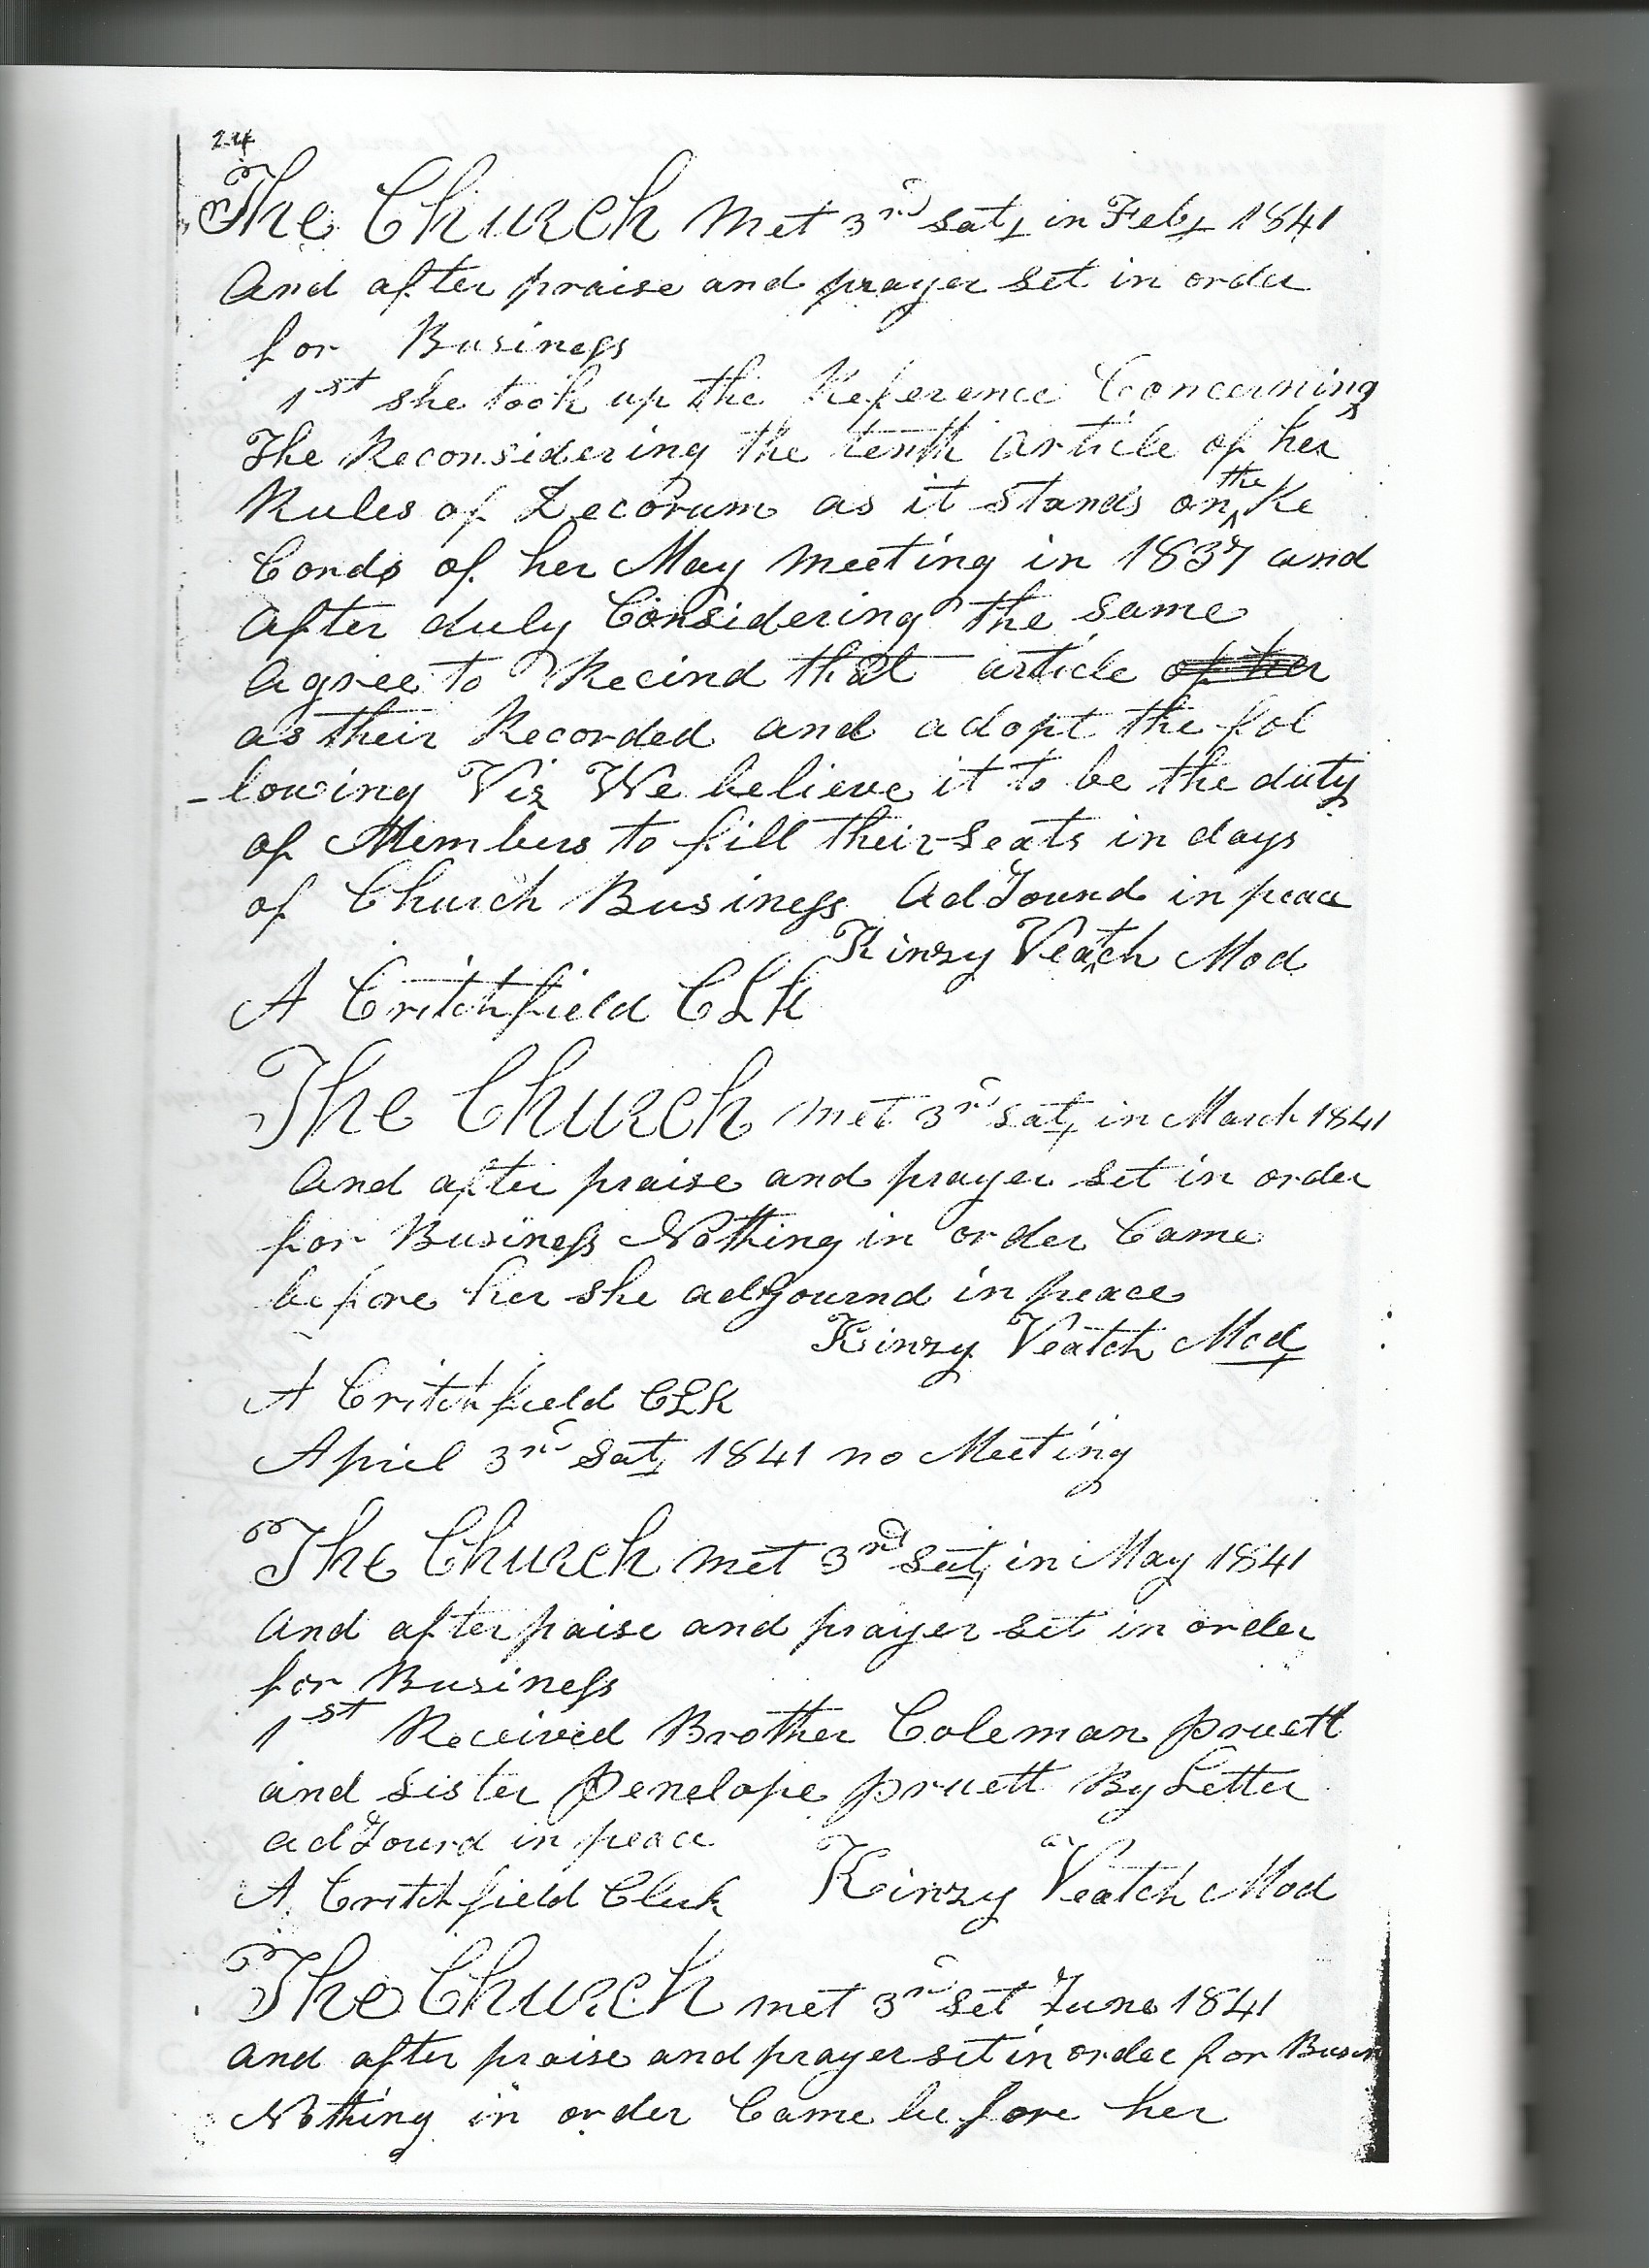 24
The Church Met 3rd Sat, in Feb, 1841
And after praise and prayer set in order
for Business
1st she took up the Reference Concerning
The Reconsidering the tenth article of her
Rules of Decorum as it Stands on the Re
Cords of her May meeting in 1837 and
After duly Considering the same
Agree to Recind that article of her
as their Recorded and adopt the fol
-lowing Viz We believe it to be the duty
of Members to fill their seats in days
of Church Business AdJound in peace
Kinzy Veatch Mod
A Critchfield CLK
The Church met 3rd Sat, in March 1841
And after praise and prayer set in order
for Business Nothing in order Came
before her she adJournd in peace
Kinzy Veatch Mod
A Critchfield CLK
April 3rd Sat, 1841 no Meeting
The Church met 3rd Sat, in May 1841
And after praise and prayer set in order
for Business
1st Received Brother Coleman pruett
and Sister Penelope pruett By Letter
adJourd in peace
A. Critchfield Clerk Kinzy Veatch Mod
The Church met 3rd Set June 1841
And after praise and prayer set in order for Busin
Nothing in order Came before her